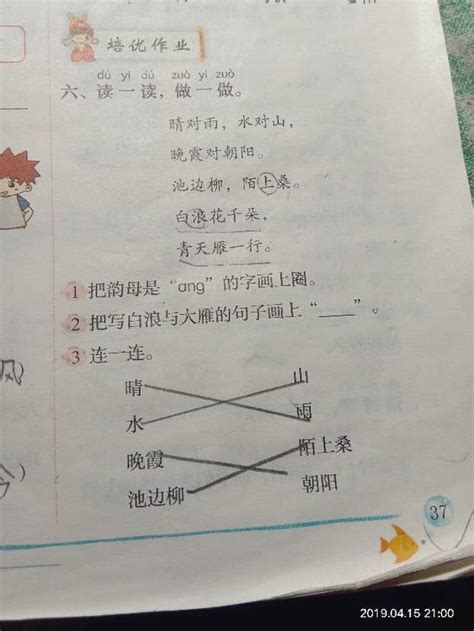 培优作业
dú yi dú zuò yi zuò
六、读一读，做一做。
晴对雨，水对山，
晚霞对朝阳。
池边柳，陌上桑。
白浪花千朵，
青天雁一行。
1 把韵母是“ang”的字画上圈。
2 把写白浪与大雁的句子画上“____”。
3 连一连。
晴 山
水 雨
晚霞 陌上桑
池边柳 朝阳
风)
37
2019.04.15 21:00